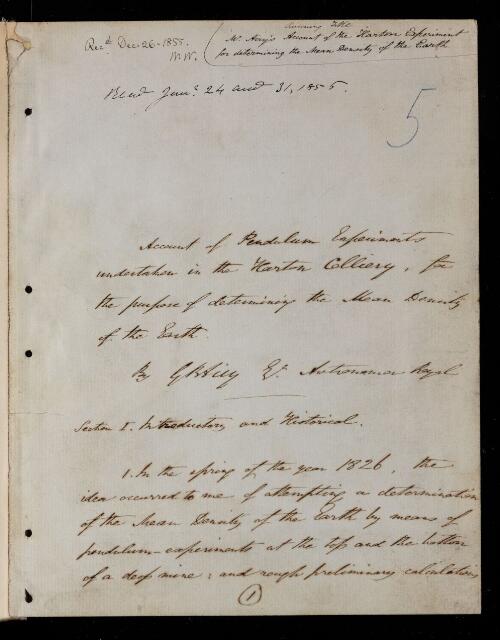 Running Title
Mr. Airy's Account of the Harton Experiment
for determining the Mean Density of the Earth
Recd. Dec. 26. 1855.
W.W.
Read Jany. 24 and 31, 1856.
5
Account of Pendulum Experiments
undertaken in the Harton Colliery, for
the purpose of determining the Mean Density
of the Earth.
By G B Airy Esqr. Astronomer Royal
Section I. Introductory and Historical.
1. In the spring of the year 1826, the
idea occurred to me of attempting a determination
of the Mean Density of the Earth by means of
pendulum-experiments at the top and the bottom
of a deep mine: and rough preliminary calculations
1